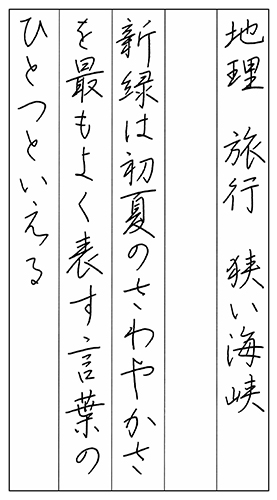 地理　旅行　狭い海峡
新緑は初夏のさわやかさ
を最もよく表す言葉の
ひとつといえる